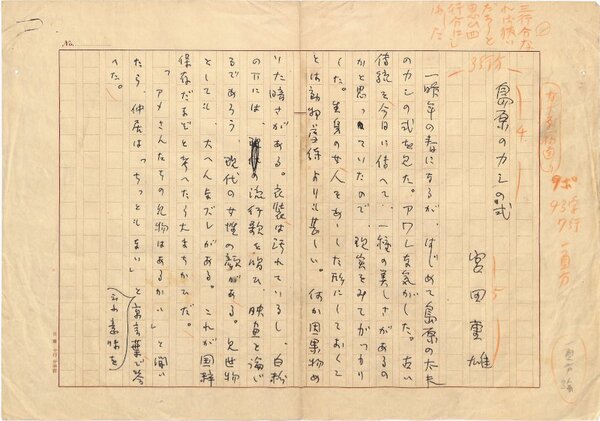 三行分な
れば狭い
行分にし
島原のカシの式
宮田重雄
一昨年の春になるが、はじめて島原の太夫
のカシの式を見た。アワレな気がした。古い
傳統を今日に傳へて、一種の美しさがあるの
かと思っていたので、現実をみてがっかり
した。生身の女人をあゝした形にしておくこ
とは動物学級よりも甚しい。何か因果物め
いた暗さがある。衣装は汚れているし、白粉
の下には、の流行歌を唄ひ映画を論じ
るであろう現代の女性の顔がある。見世物
としても、大へん気だしがある。これが国粋
保存だなぞと考へたら大まちがひだ。
「アメさんたちの見物はあるかい」と聞い
たら、仲居は「ちっともない」と京言葉で答
へた。
る意味を
9ポ
7行
一頁分
No.